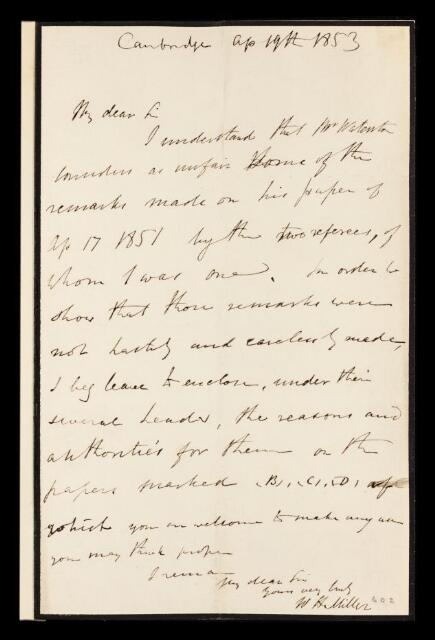 Cambridge Ap 19th 1853
My dear Sir
I understand that Mr Waterston
considers as unfair some of the
remarks made on his paper of
Ap 17 1851 by the two referees, of
whom I was one. In order to
show that those remarks were
not hastily and carelessly made,
I beg leave to enclose, under their
several heads, the reasons and
authorities for them on the
papers marked (B), (C), (D), of
which you are welcome to make any use
you may think proper
I remain
My dear Sir
Yours very truly
W H Miller